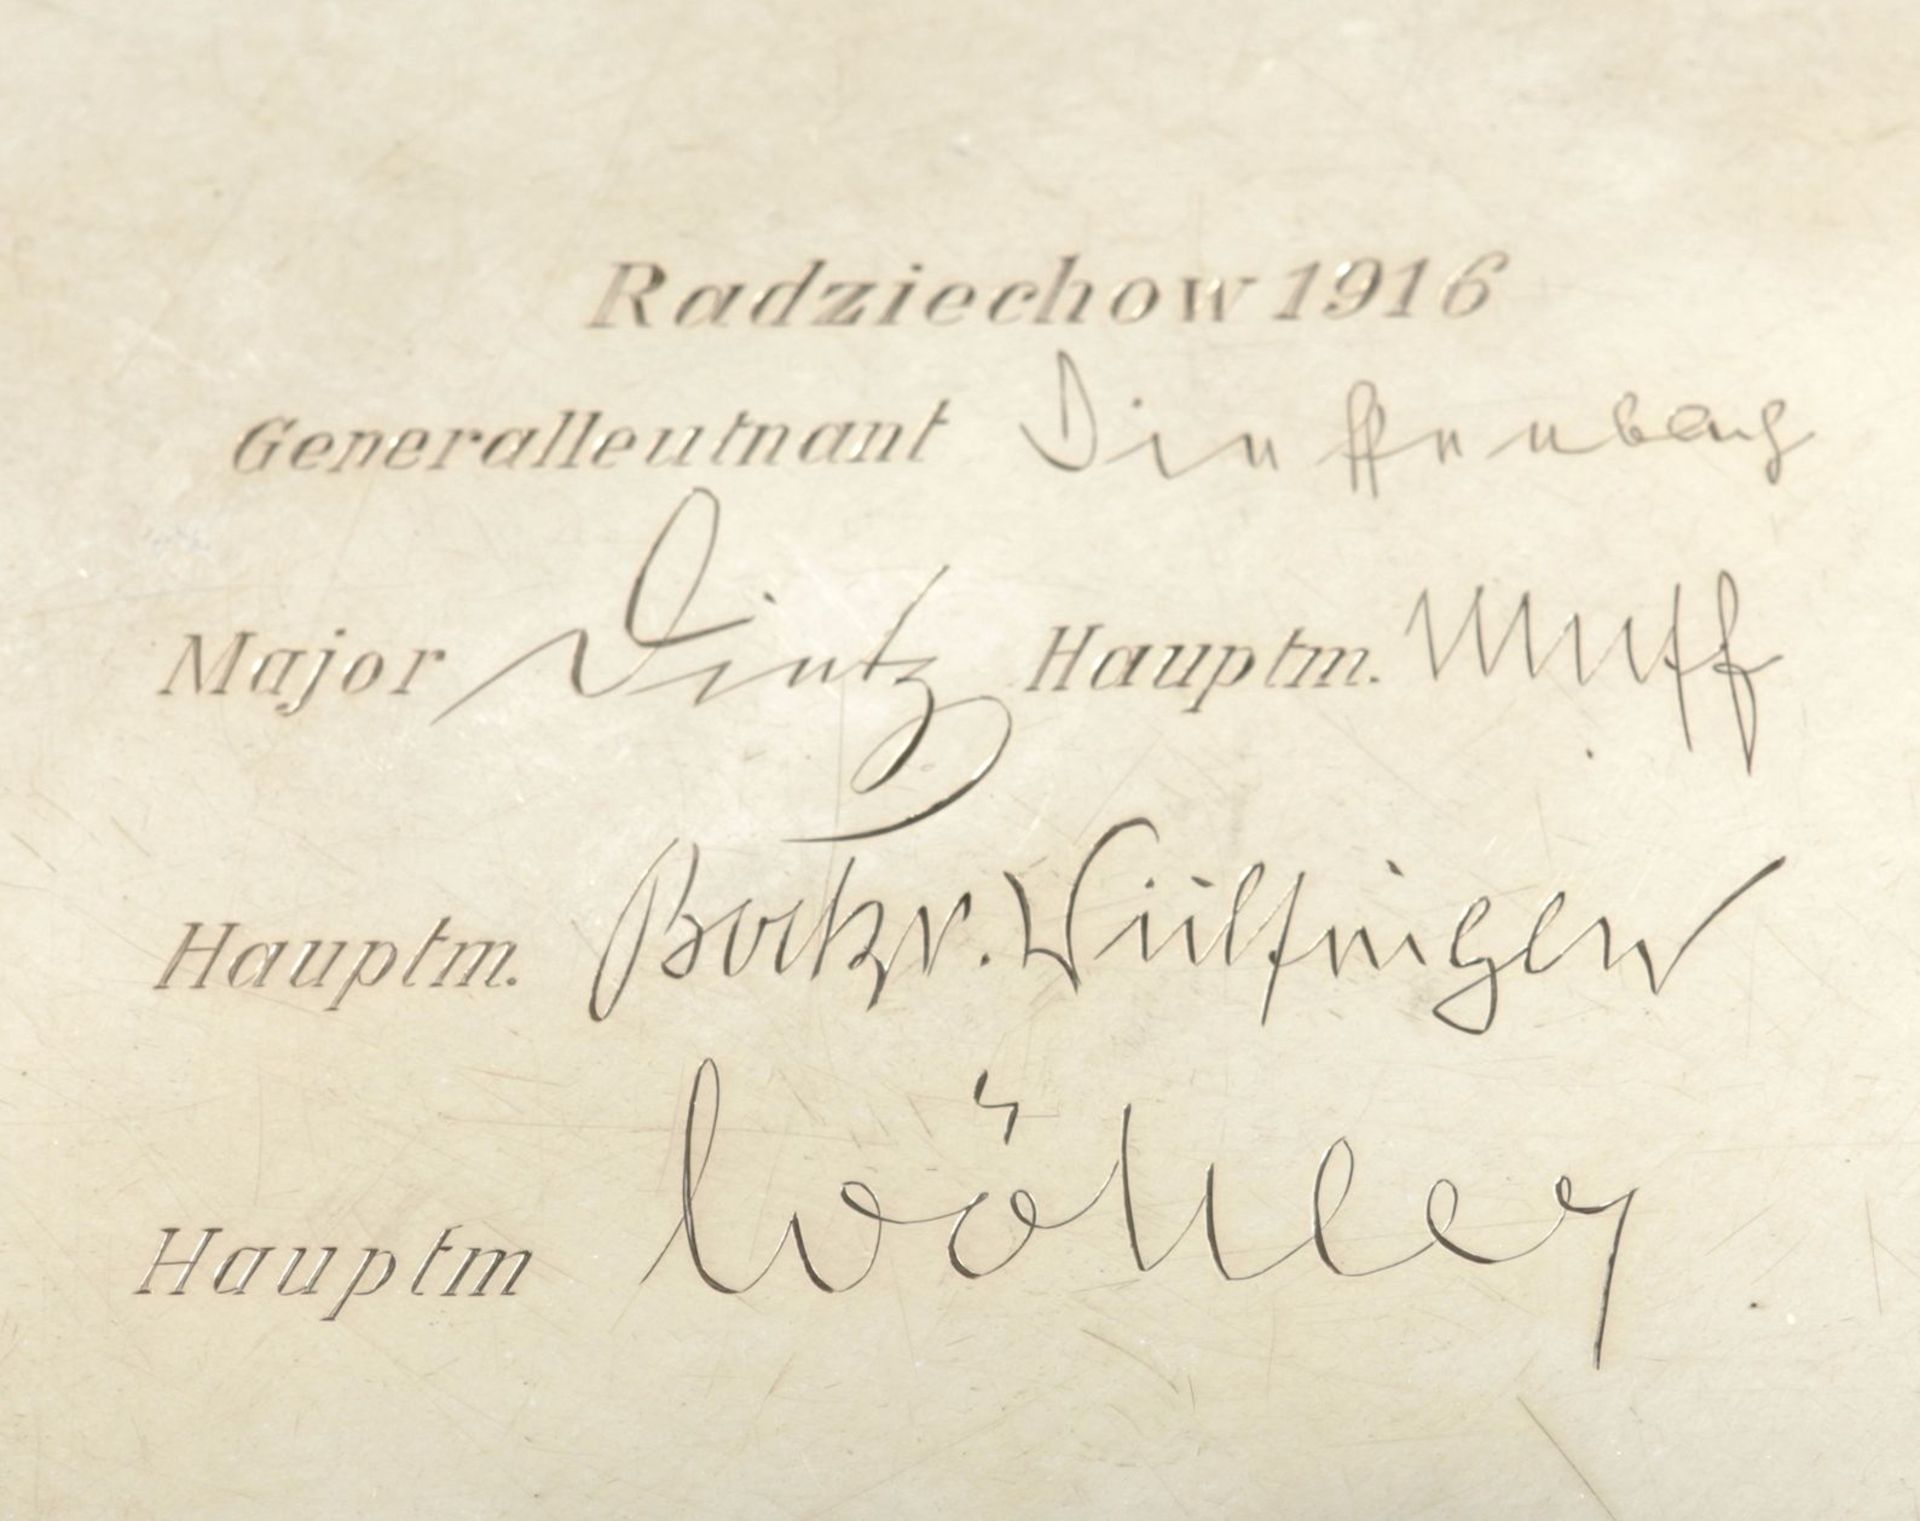 Radziechow 1916
Generalleutnant Dieffenbach
Major Dietz Hauptm. Muff
Hauptm. Bock v. Wülfingen
Hauptm Wöhler